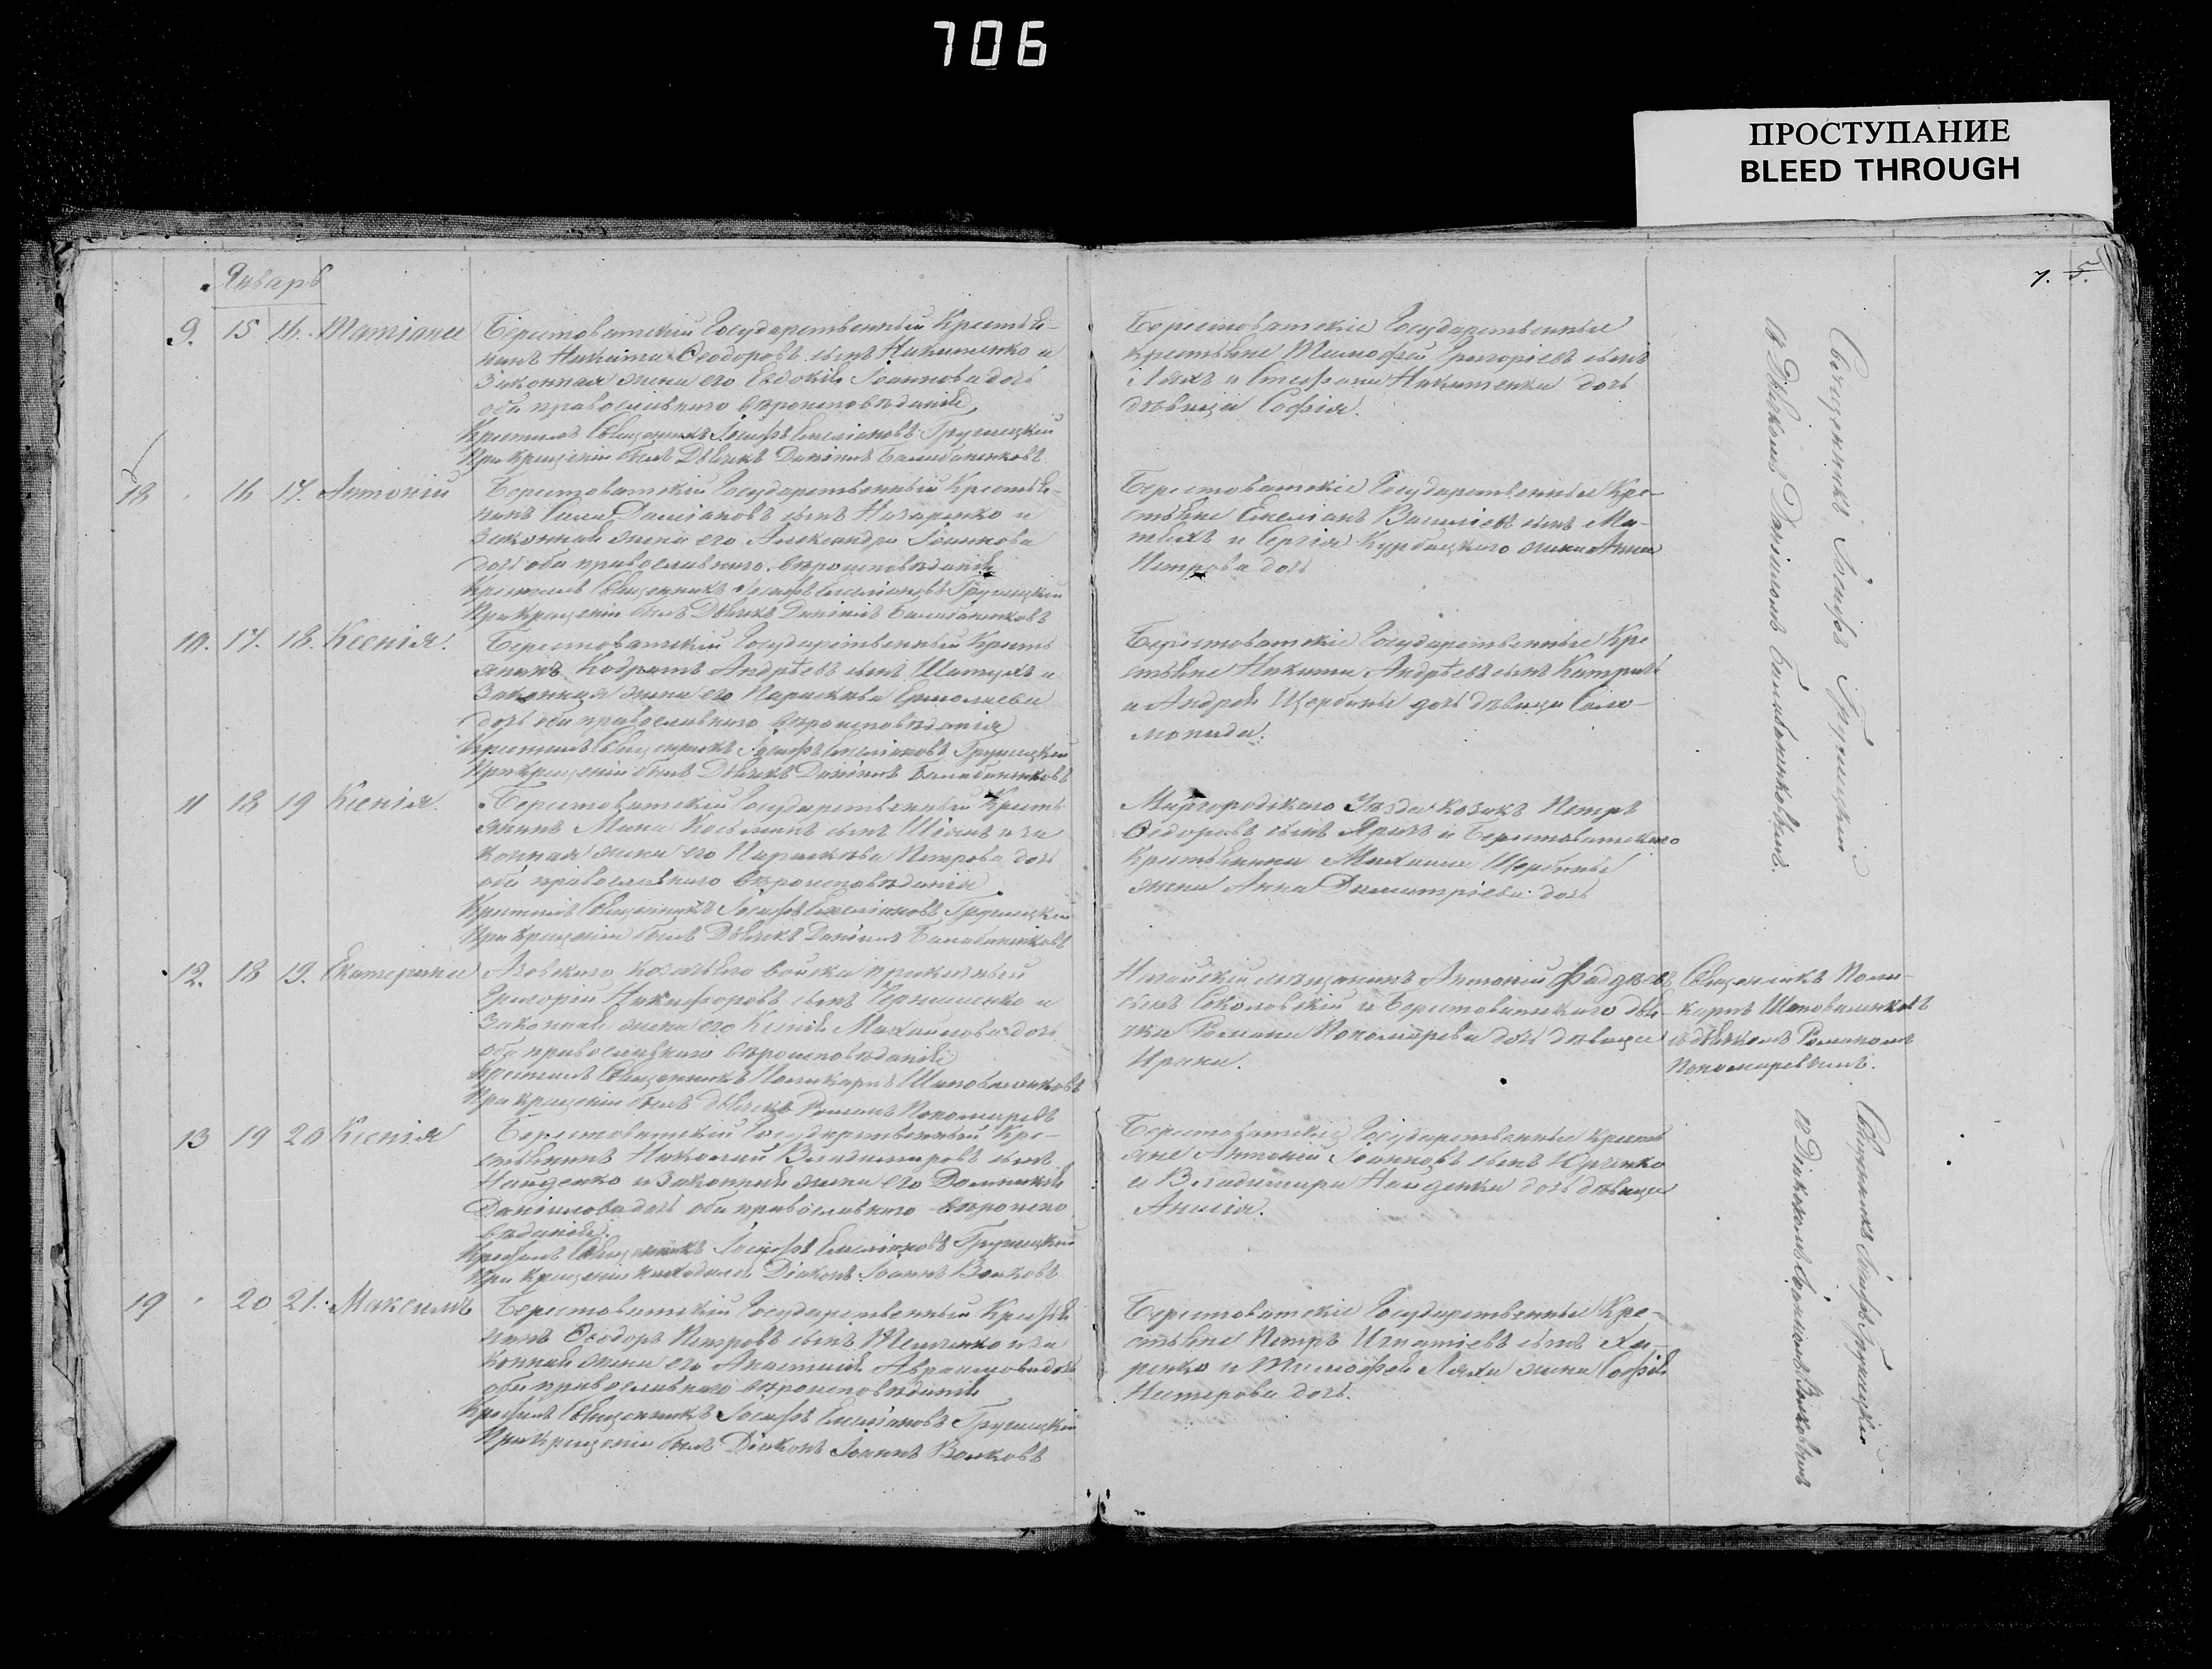 706
ПРОСТУПАНИЕ
BLEED THROUGH
7.
Январь
9. 15 16. Татіана
Берестоватскій Государственный Крестья-
нинъ Никита Ѳеодоровъ сынъ Никитенко и
законная жена его Евдокія Іоаннова дочь
оба православнаго вѣроисповѣданія
Крестилъ Священникъ Іосифъ Емеліановъ Грушецкій
При крещеніи былъ Дьячкъ Даніилъ Балабаненковъ
Берестоватскіе Государственные
крестьяне Тимофей Григоріевъ сынъ
Ляхъ и Стефана Никитенка дочь
дѣвица Софія.
18 16 17. Антоній
Берестоватскій Государственный Крестья-
нинъ Даміановъ сынъ Назаренко и
законная жена его Александра Іоаннова
дочь оба православнаго вѣроисповѣданія
Крестилъ Священникъ Іосифъ Емеліановъ Грушецкій
При крещеніи былъ Дьячкъ Даніилъ Балабаненковъ
Берестоватскіе Государственные Кре-
стьяне Емеліанъ Василіевъ сынъ Ма-
и Сергія Курбацкаго жена Анна
Петрова дочь
10. 17. 18. Ксенія.
Берестоватскій Государственный Кресть
янинъ Кодратъ Андрѣевъ сынъ и
Законная жена его Параскева Ермолаева
дочь оба православнаго вѣроисповѣданія
Крестилъ Священникъ Іосифъ Емеліановъ Грушецкій
При крещеніи былъ Дьячкъ Даніилъ Балабаненковъ
Берестоватскіе Государственные Кре
стьяне Никита Андрѣевъ сынъ
и Андрея Щербины дочь дѣвица Соло-
монида.
11 18 19 Ксенія.
Берестоватскій Государственный Кресть
янинъ Мина Косьминъ сынъ и за
конная жена его Параскева Петрова дочь
оба православнаго вѣроисповѣданія
Крестилъ Священникъ Іосифъ Емеліановъ Грушецкій
При крещеніи былъ Дьячкъ Даніилъ Балабаненковъ
Миргородскаго Уѣзда козакъ Петръ
Ѳедоровъ сынъ и Берестоватскаго
крестьянина Михаила Щербины
жена Анна Димитріева дочь
Священникъ Іосифъ Грушецкій
съ Дьячкомъ Даніиломъ Балабаненковымъ.
12. 18 19. Екатерина
Азовскаго козачьяго войска приказный
Григорій Никифоровъ сынъ и
Законная жена его Ксенія Михайлова дочь
оба православнаго вѣроисповѣданія
Крестилъ Священникъ Поликарпъ Шаповаленковъ
При крещеніи былъ дьячкъ Романъ Пономаревъ
Ногайскій мѣщанинъ Антоній Фадѣевъ
сынъ Соколовскій и Берестоватскаго дья-
чка Романа Пономарева дочь дѣвица
Ирина.
Священникъ Поли-
карпъ Шаповаленковъ
съ дьячкомъ Романомъ
Пономаревымъ.
13 19 20 Ксенія
Берестоватскій Государственный Кре-
стьянинъ Николай Владиміровъ сынъ
Найденко и Законная жена его Домникія
Даніилова дочь оба православнаго вѣроиспо
вѣданія.
Крестилъ Священникъ Іосифъ Емеліановъ Грушецкій
При крещеніи находился Діаконъ Іоаннъ Волковъ
Берестоватскіе Государственные кресть
яне Антоній Іоанновъ сынъ Юрченко
и Владиміра Найденка дочь дѣвица
Анисія.
19 20 21. Максимъ
Берестоватскій Государственный Крестья
нинъ Ѳеодоръ Петровъ сынъ и за
конная жена его Анастасія Авраамова дочь
оба православнаго вѣроисповѣданія
Крестилъ Священникъ Іосифъ Емеліановъ Грушецкій
При крещеніи былъ Діаконъ Іоаннъ Волковъ
Берестоватскіе Государственные Кре-
стьяне Петръ Игнатіевъ сынъ Ха-
ренко и Тимофея Ляха жена Софія
Нестерова дочь.
Священникъ Іосифъ Грушецкій
съ Діакономъ Іоанномъ Волковымъ